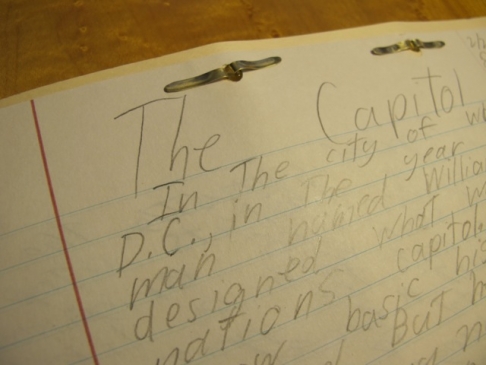 The Capitol
In The city of
D.C., in The year
man named Willia
designed what w
nations capitol.
basic his
But h